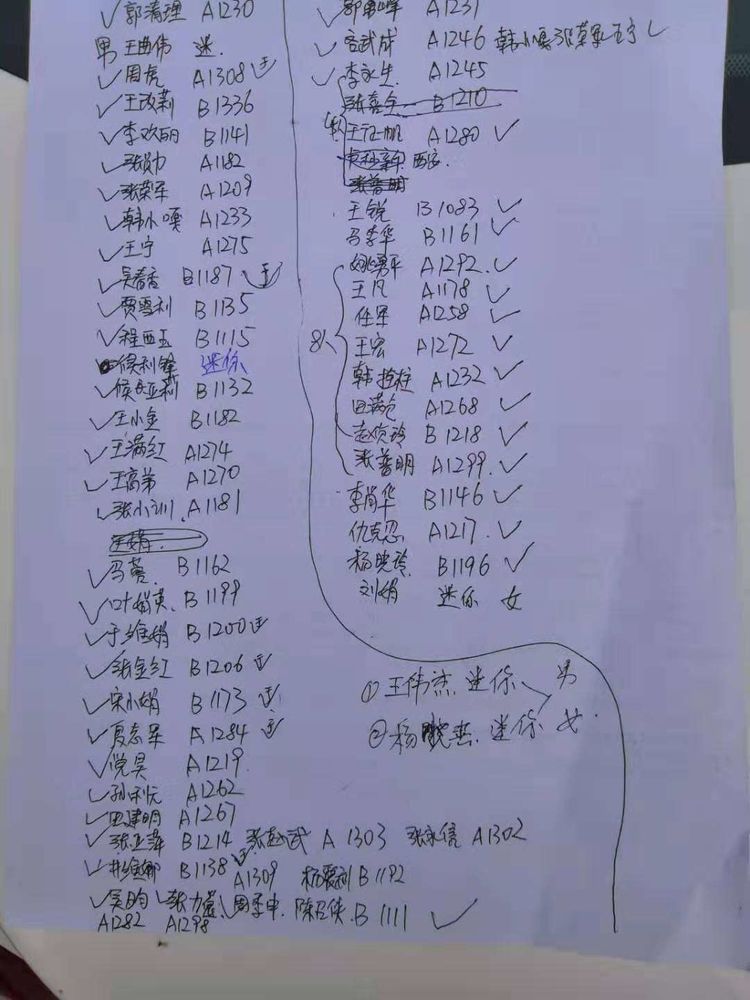 ✓郭清理 A1230
男 王曲伟 迷
✓周虎 A1308 正
✓王改莉 B1336
✓李欢丽 B1141
✓张勋 A1182
✓张荣军 A1209
✓韩小嘎 A1233
✓王宁 A1275
✓吴春香 B1187 ✓正
✓贾雪利 B1135
✓程西玉 B1115
侯利锋 迷你
✓侯亚莉 B1132
✓王小金 B1182
✓王满红 A1274
✓王高弟 A1270
✓张小川 A1181
✓马蓉 B1162
✓叶娟英 B1199
✓于维娟 B1200 正
✓张金红 B1206 正
✓宋小娟 B1173 正
✓夏志军 A1284 正
✓倪昊 A1219
✓孙利元 A1262
✓田建明 A1267
✓张亚萍 B1214 张赵武 A1303 张永信 A1302
✓彬维娜 B1138 杨爱利 B1192
✓吴昀 ✓张力 ✓周季申 A1309 陈启侠 B1111 ✓
A1282 A1298
✓ A1231
✓武成 A1246 韩小嘎 张荣军 王宁 ✓
✓李永生 A1245
张喜全 B1210
王征帆 A1280 ✓
西安
张普明
王锐 B1083 ✓
马李华 B1161 ✓
姚勇平 A1292 ✓
王凡 A1178 ✓
任军 A1258 ✓
8人 王宏 A1272 ✓
韩拴柱 A1232 ✓
田满仓 A1268 ✓
赵贞玲 B1218 ✓
张普明 A1299 ✓
李肖华 B1146 ✓
仇克忍 A1217 ✓
杨晓玲 B1196 ✓
刘娟 迷你 女
①王伟杰 迷你 男
②杨晓燕 迷你 女